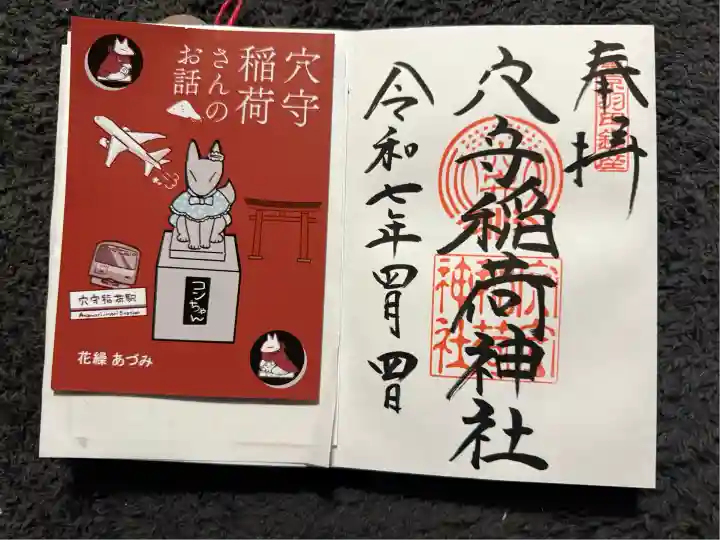 穴守
稲荷
さんの
お話
コンちゃん
穴守稲荷駅
Anamori-inari Station
花繰 あづみ
奉拝
穴守稲荷神社
令和七年四月四日